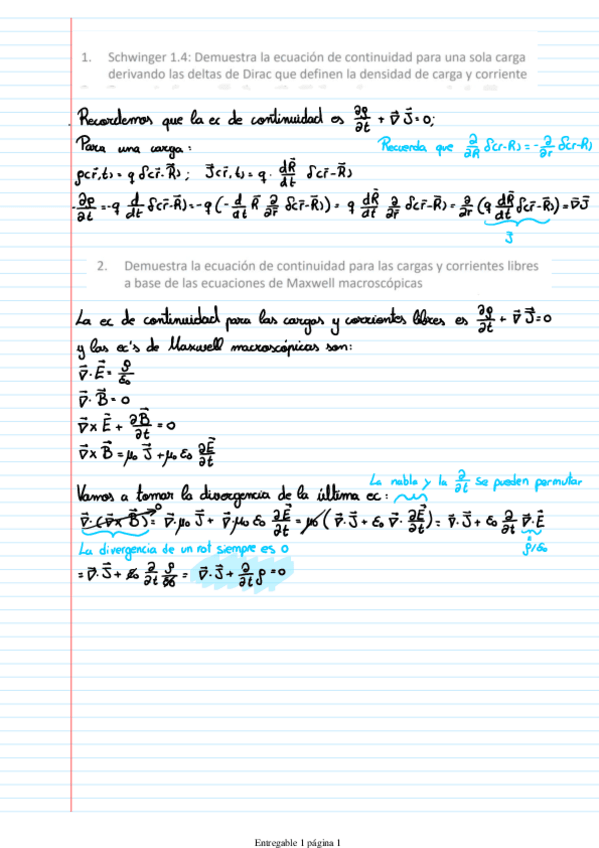 1. Schwinger 1.4: Demuestra la ecuación de continuidad para una sola carga
derivando las deltas de Dirac que definen la densidad de carga y corriente
Recordemos que la ec de continuidad es ∂ρ/∂t + ∇⃗J⃗=0;
Para una carga:
Recuerda que ∂/∂R δ(r-R)=-∂/∂r δ(r-R)
ρ(r⃗,t)=q δ(r⃗-R⃗); J⃗(r⃗,t)=q· dR⃗/dt δ(r⃗-R⃗)
-∂ρ/∂t=-q d/dt δ(r⃗-R⃗)=-q(-d/dt R⃗ ∂/∂r⃗ δ(r⃗-R⃗))= q dR⃗/dt ∂/∂r⃗ δ(r⃗-R⃗)= ∂/∂r⃗ (q dR⃗/dt δ(r⃗-R⃗))=∇⃗J⃗
J⃗
2. Demuestra la ecuación de continuidad para las cargas y corrientes libres
a base de las ecuaciones de Maxwell macroscópicas
La ec de continuidad para las cargas y corrientes libres es ∂ρ/∂t + ∇⃗J⃗=0
y las ec's de Maxwell macroscópicas son:
∇⃗·E⃗=ρ/ε₀
∇⃗·B⃗=0
∇⃗×E⃗+∂B⃗/∂t=0
∇⃗×B⃗=μ₀J⃗+μ₀ε₀ ∂E⃗/∂t
La nabla y la ∂/∂t se pueden permutar
Vamos a tomar la divergencia de la última ec:
∇⃗·(∇⃗×B⃗)⁰=∇⃗·μ₀J⃗+∇⃗·μ₀ε₀ ∂E⃗/∂t=μ₀(∇⃗·J⃗+ε₀∇⃗·∂E⃗/∂t)=∇⃗·J⃗+ε₀ ∂/∂t ∇⃗·E⃗
La divergencia de un rot siempre es 0
ρ/ε₀
=∇⃗·J⃗+ε₀ ∂/∂t ρ/ε₀ = ∇⃗·J⃗+∂/∂t ρ=0
Entregable 1 página 1